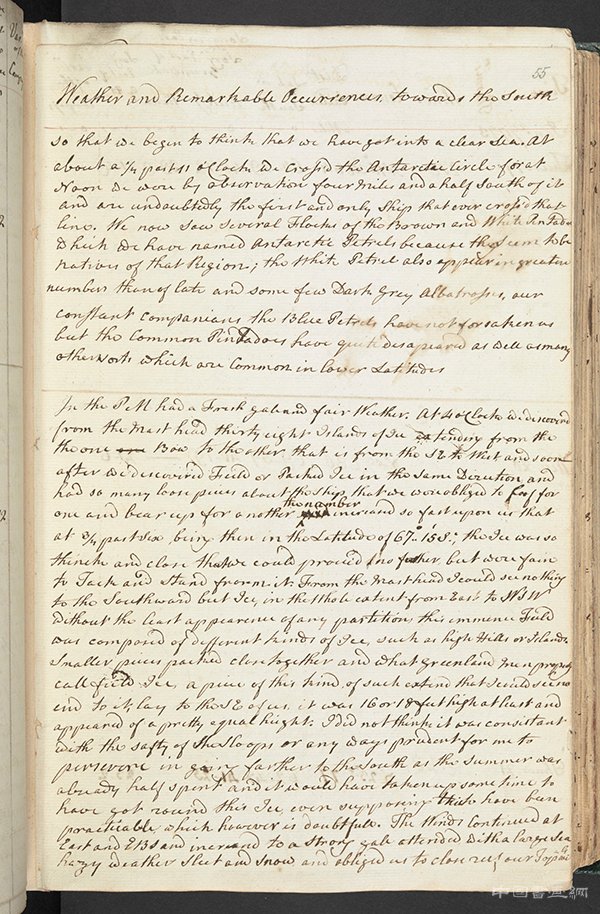 55
Weather and Remarkable Occurrences towards the South
so that we begin to think that we have got into a clear Sea. At
about a 1/4 past 11 oClock we cross'd the Antarctic Circle for at
Noon we were by observation four Miles and a half South of it
and are undoubtedly the first and only Ship that ever cross'd that
line. We now saw several Flocks of the Brown and White Pintados
Which we have named Antarctic Petrels because they seem to be
natives of that Region; the White Petrel also appear in greater
numbers than of late and some few Dark Grey Albatrosses, our
constant companians the Blue Petrels have not forsaken us
but the Common Pintadoes have quite disapeared as well as many
other sorts which are Common in lower Latitudes
In the PM had a Fresh gale and fair Weather. At 4 oClock we discovered
from the Mast head thirty eight Islands of Ice extending from the
the one Bow to the other, that is from the SE to West and soon
after we discovered Field or Packed Ice in the same Direction and
had so many loose pieces about the Ship that we were obliged to loof for
one and bear up for a nother, the number increased so fast upon us that
at 3/4 past Six being then in the Latitude of 67° 15' S; the Ice was so
thick and close that we could proceed no further but were fain
to Tack and Stand from it. From the Mast head I could see nothing
to the Southward but Ice, in the Whole extent from East to WSW
Without the least appearence of any partition, this immence Field
was composed of different kinds of Ice, such as high Hills or Islands,
Smaller pieces packed close together and what Greenland Men properly
call field Ice, a piece of this kind, of such extend that I could see no
end to it, lay to the SE of us, it was 16 or 18 feet high at least and
appeared of a pretty equal height. I did not think it was consistant
with the safty of the Sloops or any ways prudent for me to
persevere in going farther to the South as the summer was
already half spent and it would have taken up some time to
have got round this Ice, even supposing this to have been
practicable, which however is doubtfull. The Winds Continued at
East and EBS and increased to a strong gale attended with a large Sea
hazy weather Sleet and Snow and obliged us to close reef our Topsails
中国书画网